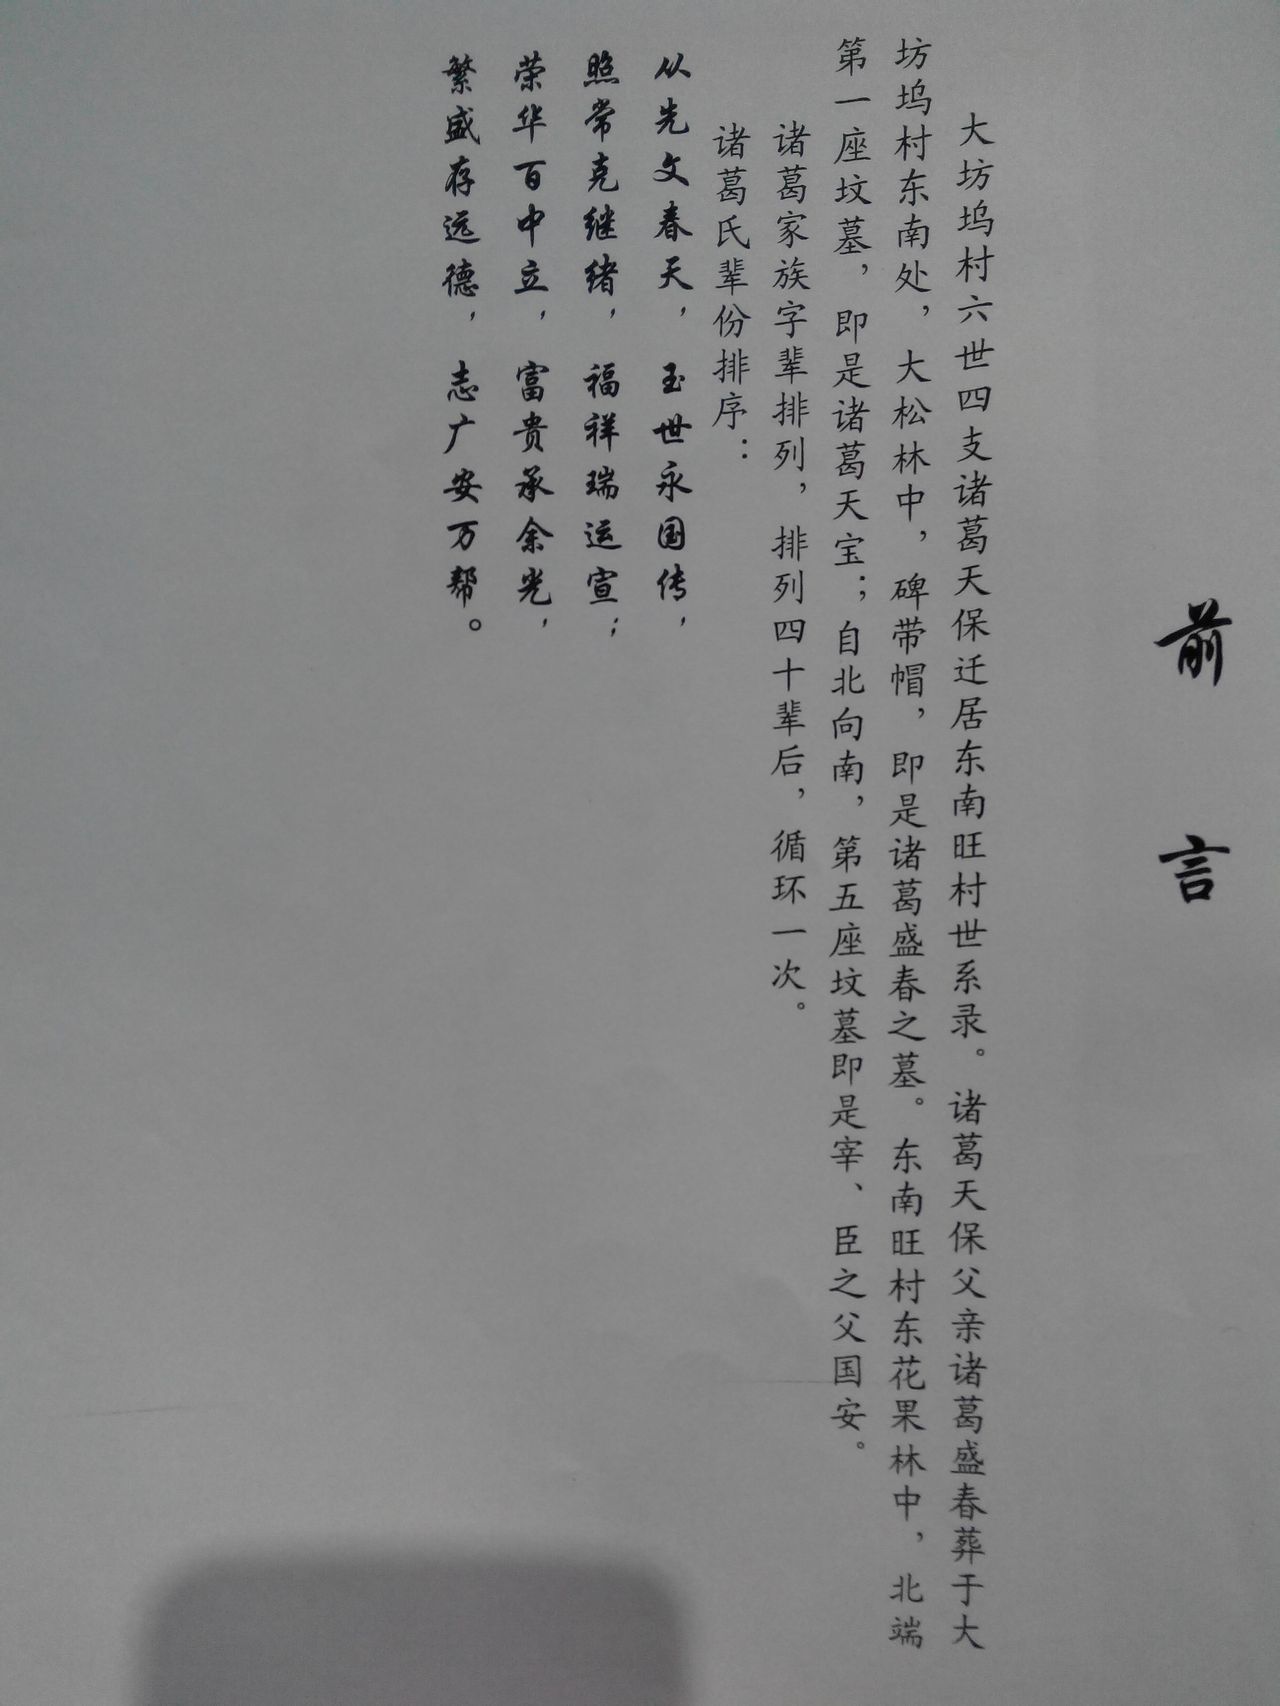 前言
大坊坞村六世四支诸葛天保迁居东南旺村世系录。诸葛天保父亲诸葛盛春葬于大
坊坞村东南处，大松林中，碑带帽，即是诸葛盛春之墓。东南旺村东花果林中，北端
第一座坟墓，即是诸葛天宝；自北向南，第五座坟墓即是宰、臣之父国安。
诸葛家族字辈排列，排列四十辈后，循环一次。
诸葛氏辈份排序：
从先文春天，玉世永国传，
照常克继绪，福祥瑞运宣；
荣华百中立，富贵承余光，
繁盛存远德，志广安万帮。